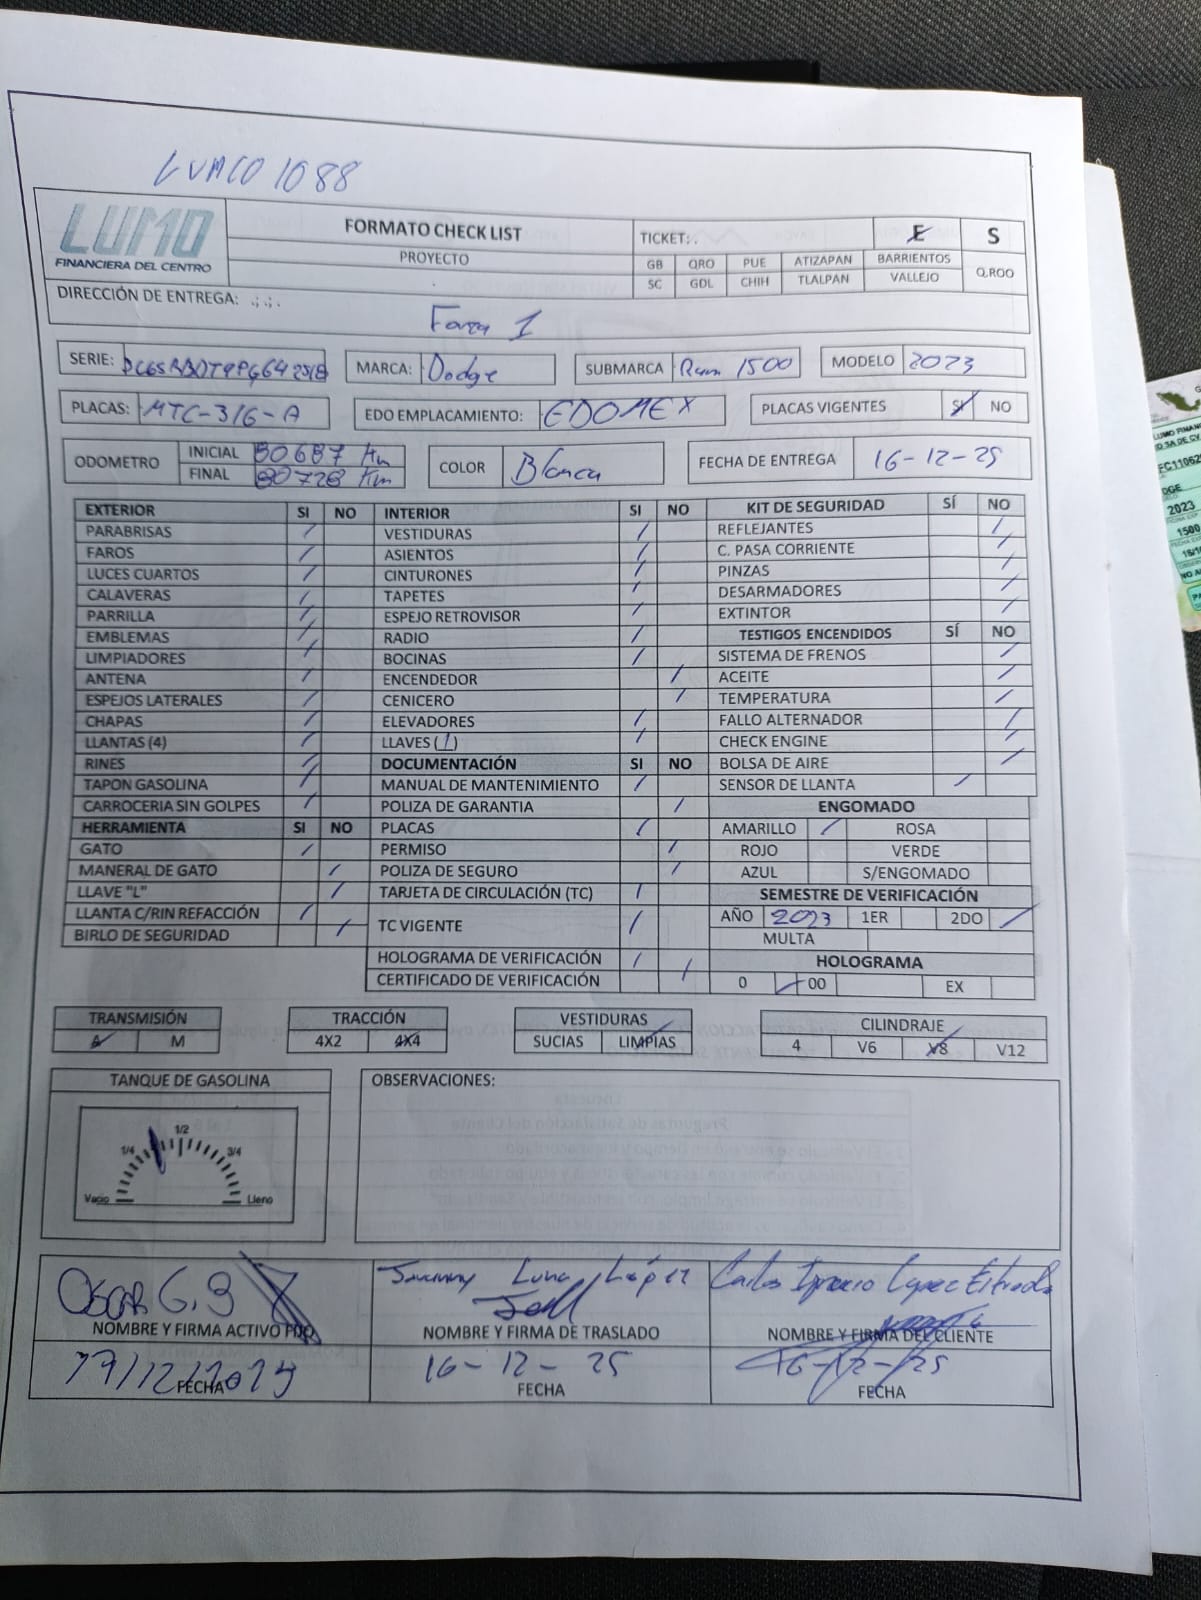 LUMCO 1088
LUMO
FINANCIERA DEL CENTRO
FORMATO CHECK LIST
PROYECTO
TICKET: . E S
GB QRO PUE ATIZAPAN BARRIENTOS Q.ROO
SC GDL CHIH TLALPAN VALLEJO
DIRECCIÓN DE ENTREGA: .; .; .
Forza 1
SERIE: MARCA: Dodge SUBMARCA Ram 1500 MODELO 2023
PLACAS: MTC-316-A EDO EMPLACAMIENTO: EDOMEX PLACAS VIGENTES SI NO
ODOMETRO INICIAL 80687 Km COLOR Blanca FECHA DE ENTREGA 16-12-25
FINAL 80728 Km
EXTERIOR SI NO INTERIOR SI NO KIT DE SEGURIDAD SÍ NO
PARABRISAS / VESTIDURAS / REFLEJANTES /
FAROS / ASIENTOS / C. PASA CORRIENTE /
LUCES CUARTOS / CINTURONES / PINZAS /
CALAVERAS / TAPETES / DESARMADORES /
PARRILLA / ESPEJO RETROVISOR / EXTINTOR /
EMBLEMAS / RADIO / TESTIGOS ENCENDIDOS SÍ NO
LIMPIADORES / BOCINAS / SISTEMA DE FRENOS /
ANTENA / ENCENDEDOR / ACEITE /
ESPEJOS LATERALES / CENICERO / TEMPERATURA /
CHAPAS / ELEVADORES / FALLO ALTERNADOR /
LLANTAS (4) / LLAVES (1) / CHECK ENGINE /
RINES / DOCUMENTACIÓN SI NO BOLSA DE AIRE /
TAPON GASOLINA / MANUAL DE MANTENIMIENTO / SENSOR DE LLANTA /
CARROCERIA SIN GOLPES / POLIZA DE GARANTIA / ENGOMADO
HERRAMIENTA SI NO PLACAS / AMARILLO / ROSA
GATO / PERMISO / ROJO VERDE
MANERAL DE GATO / POLIZA DE SEGURO / AZUL S/ENGOMADO
LLAVE "L" / TARJETA DE CIRCULACIÓN (TC) / SEMESTRE DE VERIFICACIÓN
LLANTA C/RIN REFACCIÓN / TC VIGENTE / AÑO 2023 1ER 2DO /
BIRLO DE SEGURIDAD / MULTA
HOLOGRAMA DE VERIFICACIÓN / HOLOGRAMA
CERTIFICADO DE VERIFICACIÓN / 0 / 00 EX
TRANSMISIÓN TRACCIÓN VESTIDURAS CILINDRAJE
A M 4X2 4X4 SUCIAS LIMPIAS 4 V6 V8 V12
TANQUE DE GASOLINA OBSERVACIONES:
1/2
1/4 3/4
Vacio Lleno
OSCAR G.B Luna López Carlos Ignacio Lopez Estrada
NOMBRE Y FIRMA ACTIVO FIJO NOMBRE Y FIRMA DE TRASLADO NOMBRE Y FIRMA DEL CLIENTE
17/12/2025 16-12-25 16-12-25
FECHA FECHA FECHA
2023
1500